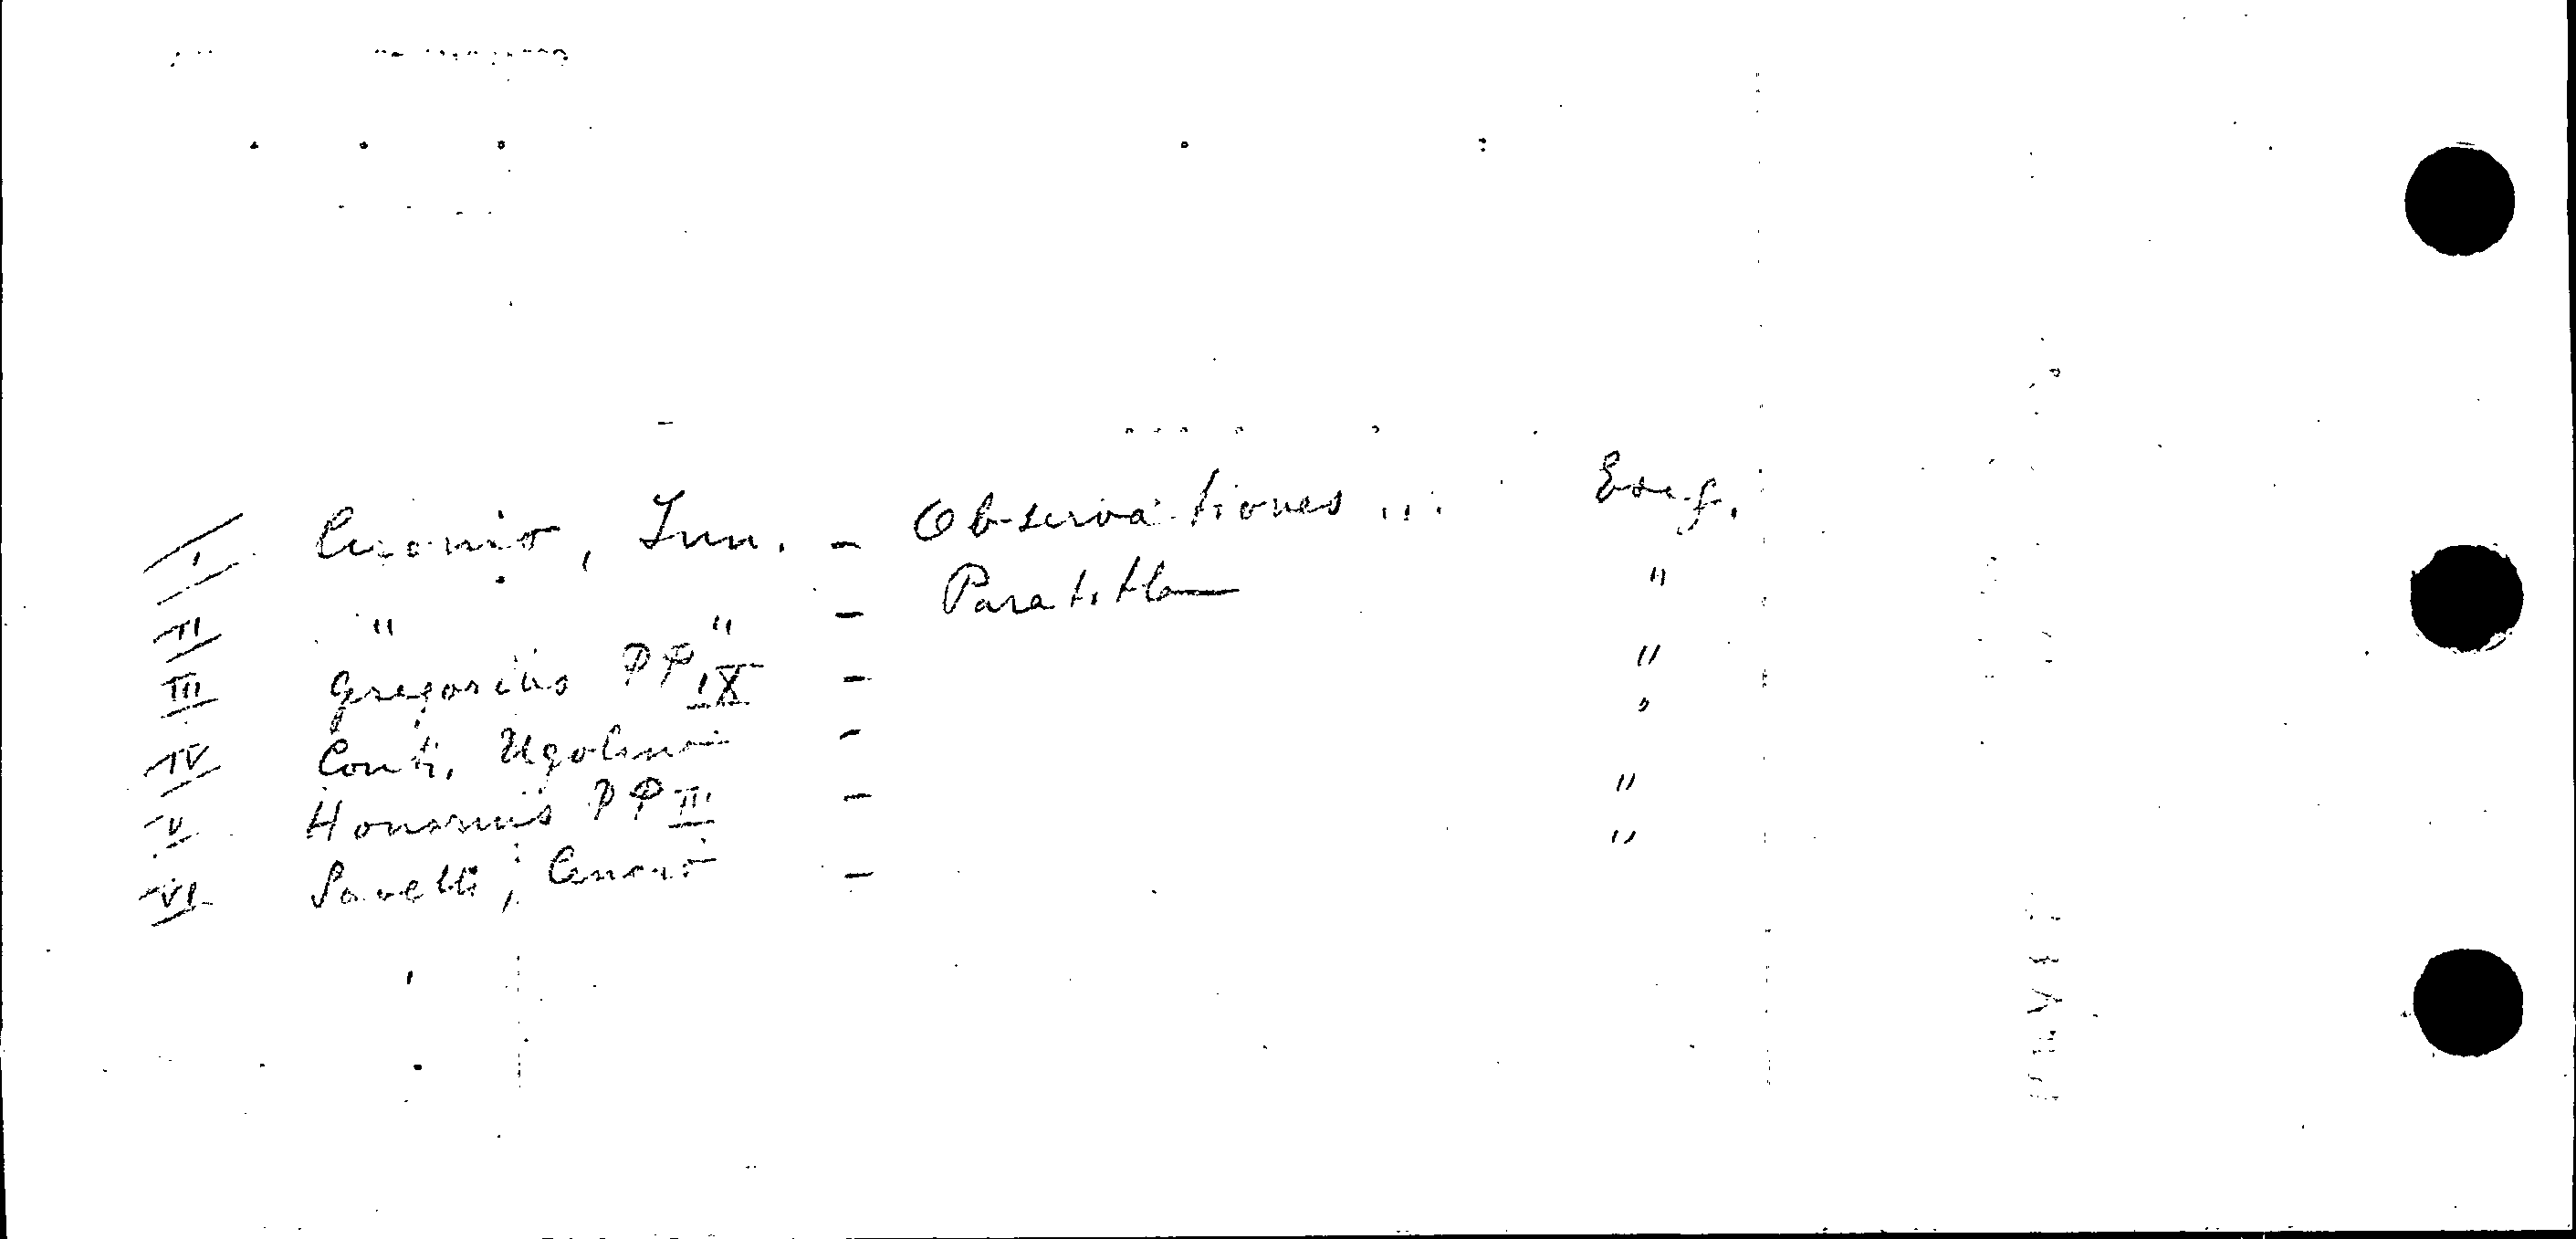 I Cironio, Inn. - Observationes ... Eseg.
II " " - Paratitla "
III Gregorius PP IX - "
IV Conti, Ugolino - "
V Honorius PP III - "
VI Savelli, Cencio - "